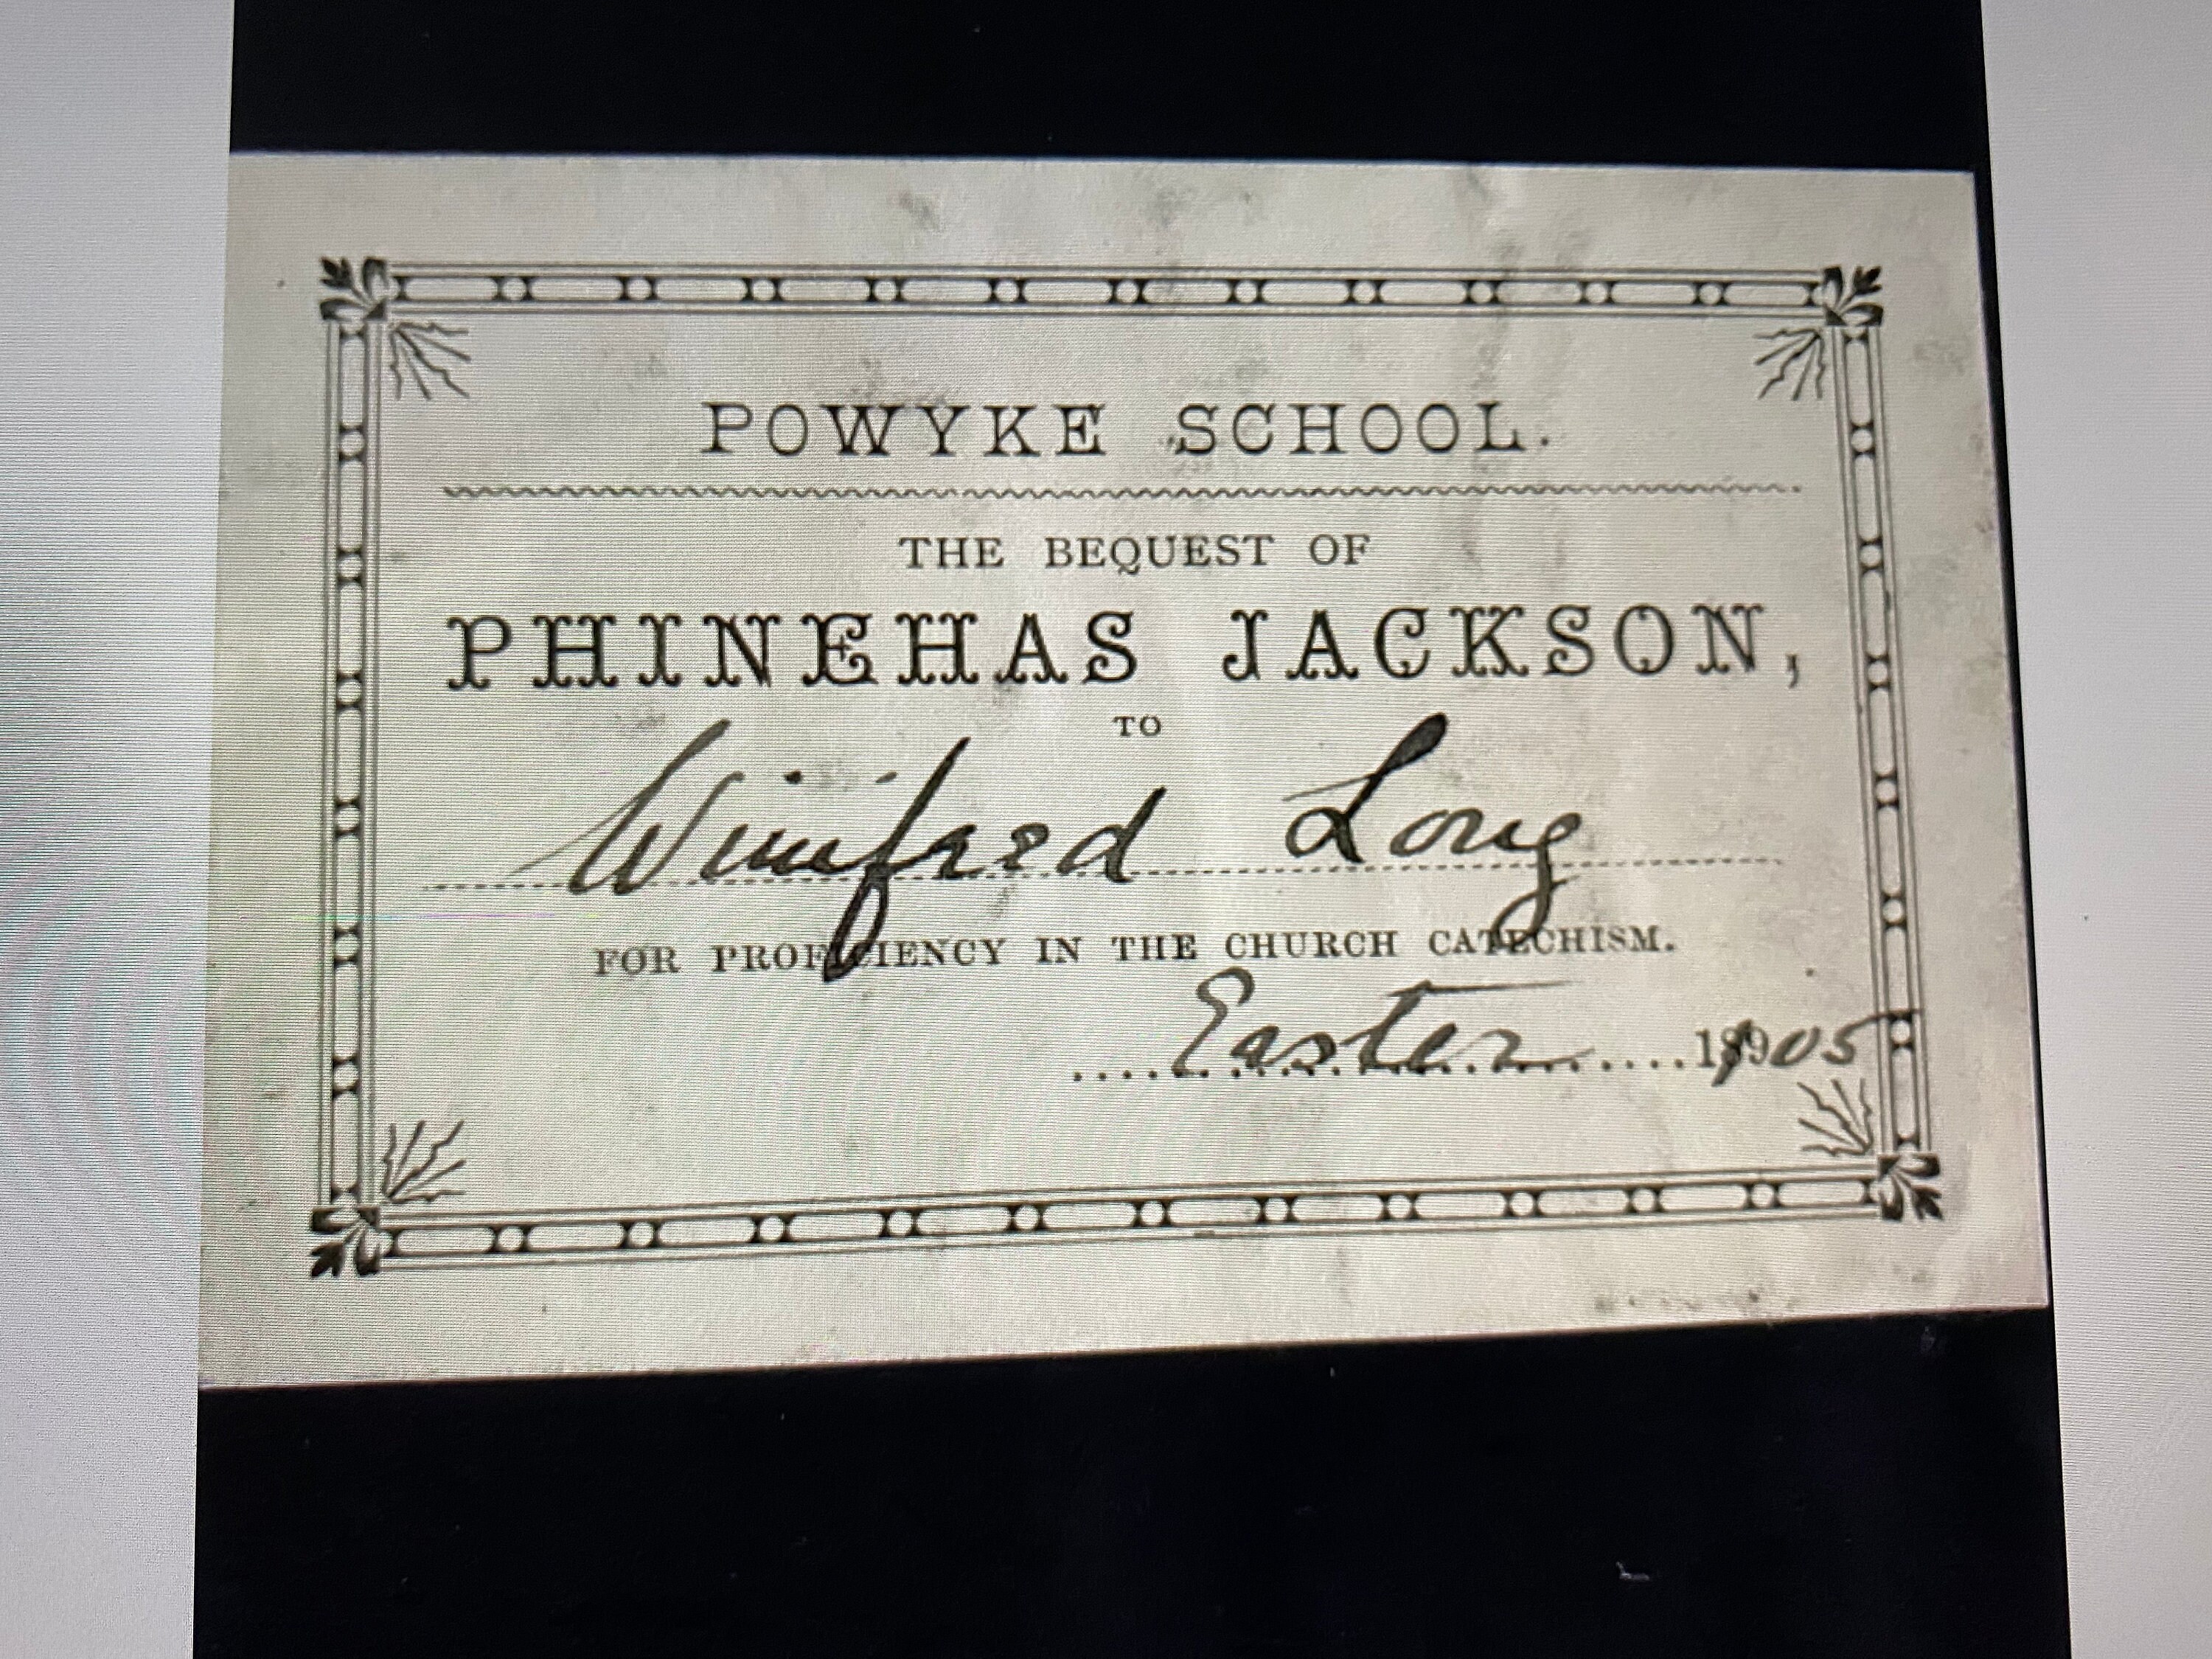 POWYKE SCHOOL.
THE BEQUEST OF
PHINEHAS JACKSON,
TO
Winifred Long
FOR PROFICIENCY IN THE CHURCH CATECHISM.
....Easter....1905